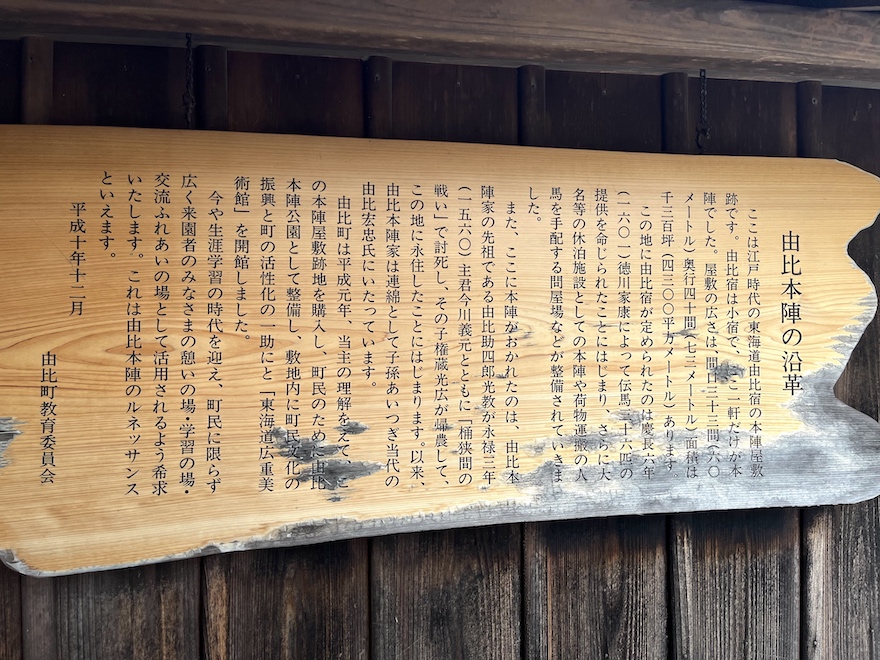 由比本陣の沿革
ここは江戸時代の東海道由比宿の本陣屋敷
跡です。由比宿は小宿で、ここ一軒だけが本
陣でした。屋敷の広さは、間口三十三間(六〇
メートル)奥行四十間(七二メートル)面積は
千三百坪(四三〇〇平方メートル)あります。
この地に由比宿が定められたのは慶長六年
(一六〇一)徳川家康によって伝馬三十六匹の
提供を命じられたことにはじまり、さらに大
名等の休泊施設としての本陣や荷物運搬の人
馬を手配する問屋場などが整備されていきま
した。
また、ここに本陣がおかれたのは、由比本
陣家の先祖である由比助四郎光教が永禄三年
(一五六〇)主君今川義元とともに「桶狭間の
戦い」で討死し、その子権蔵光広が帰農して、
この地に永住したことにはじまります。以来、
由比本陣家は連綿として子孫あいつぎ当代の
由比宏忠氏にいたっています。
由比町は平成元年、当主の理解をえて、こ
の本陣屋敷跡地を購入し、町民のために由比
本陣公園として整備し、敷地内に町民文化の
振興と町の活性化の一助にと「東海道広重美
術館」を開館しました。
今や生涯学習の時代を迎え、町民に限らず
広く来園者のみなさまの憩いの場・学習の場・
交流ふれあいの場として活用されるよう希求
いたします。これは由比本陣のルネッサンス
といえます。
平成十年十二月
由比町教育委員会